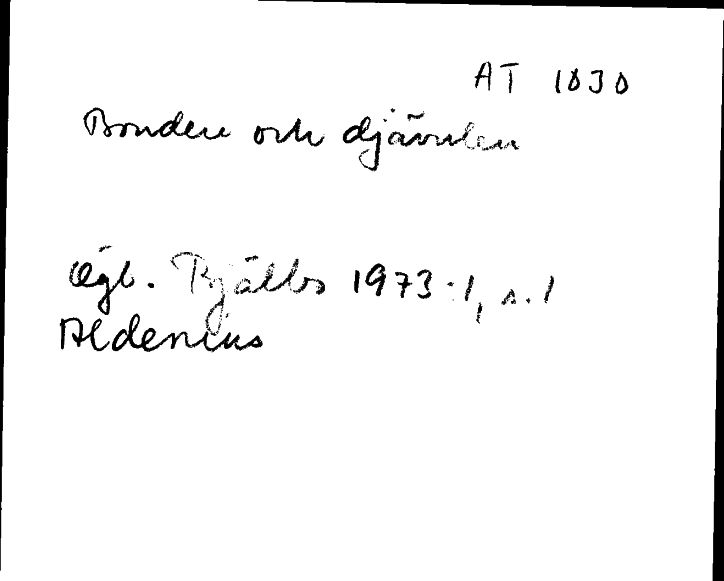 AT 1030
Bonden och djävulen
Ögb. Bjälbo 1973:1, s. 1
Aldenius